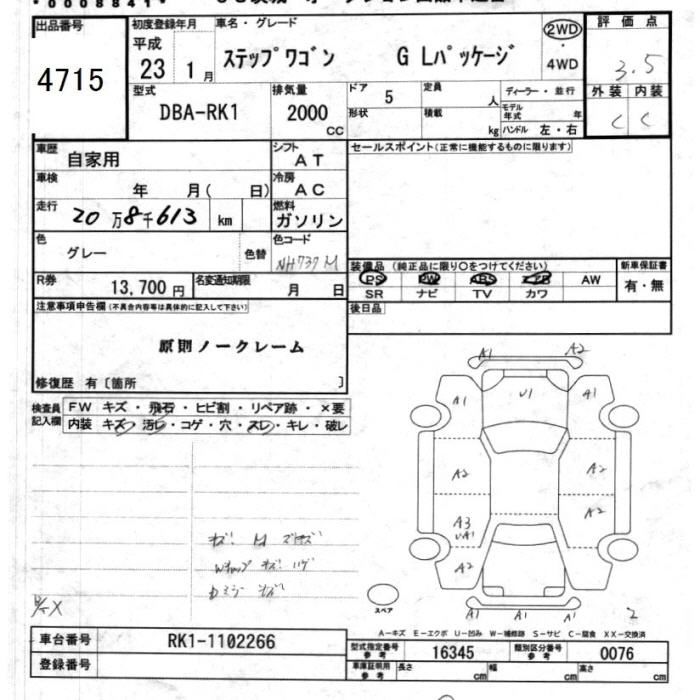 *0008841*
出品番号 初度登録年月 車名・グレード 2WD 評価点
4715 平成 23 1月 ステップワゴン G Lパッケージ ・4WD 3.5
型式 排気量 ドア 5 定員 人 ディーラー・並行 外装 内装
DBA-RK1 2000 cc 形状 積載 kg モデル年式 年 ハンドル 左・右 C C
車歴 自家用 シフト AT セールスポイント(正常に機能するものに限ります)
車検 年 月( 日) 冷房 AC
走行 20万8千613 km 燃料 ガソリン
色 グレー 色替 色コード NH737M
装備品 (純正品に限り○をつけてください) 新車保証書
PS PW ABS エアB AW 有・無
SR ナビ TV カワ
R券 13,700円 名変通知期限 月 日
後日品
注意事項申告欄(不具合内容等は具体的に記入して下さい)
原則ノークレーム
修復歴 有〔箇所 〕
検査員記入欄 FW キズ・飛石・ヒビ割・リペア跡・×要
内装 キズ・汚レ・コゲ・穴・スレ・キレ・破レ
A1 A2
A1 U1 A1
A2 A2
A3 UA1 A2
A2
A1 A1 A1
スペア
A-キズ E-エクボ U-凹み W-補修跡 S-サビ C-腐食 XX-交換済
車台番号 RK1-1102266 型式指定番号 参考 16345 類別区分番号 参考 0076
登録番号 車庫証明用 参考 長さ cm 幅 cm 高さ cm